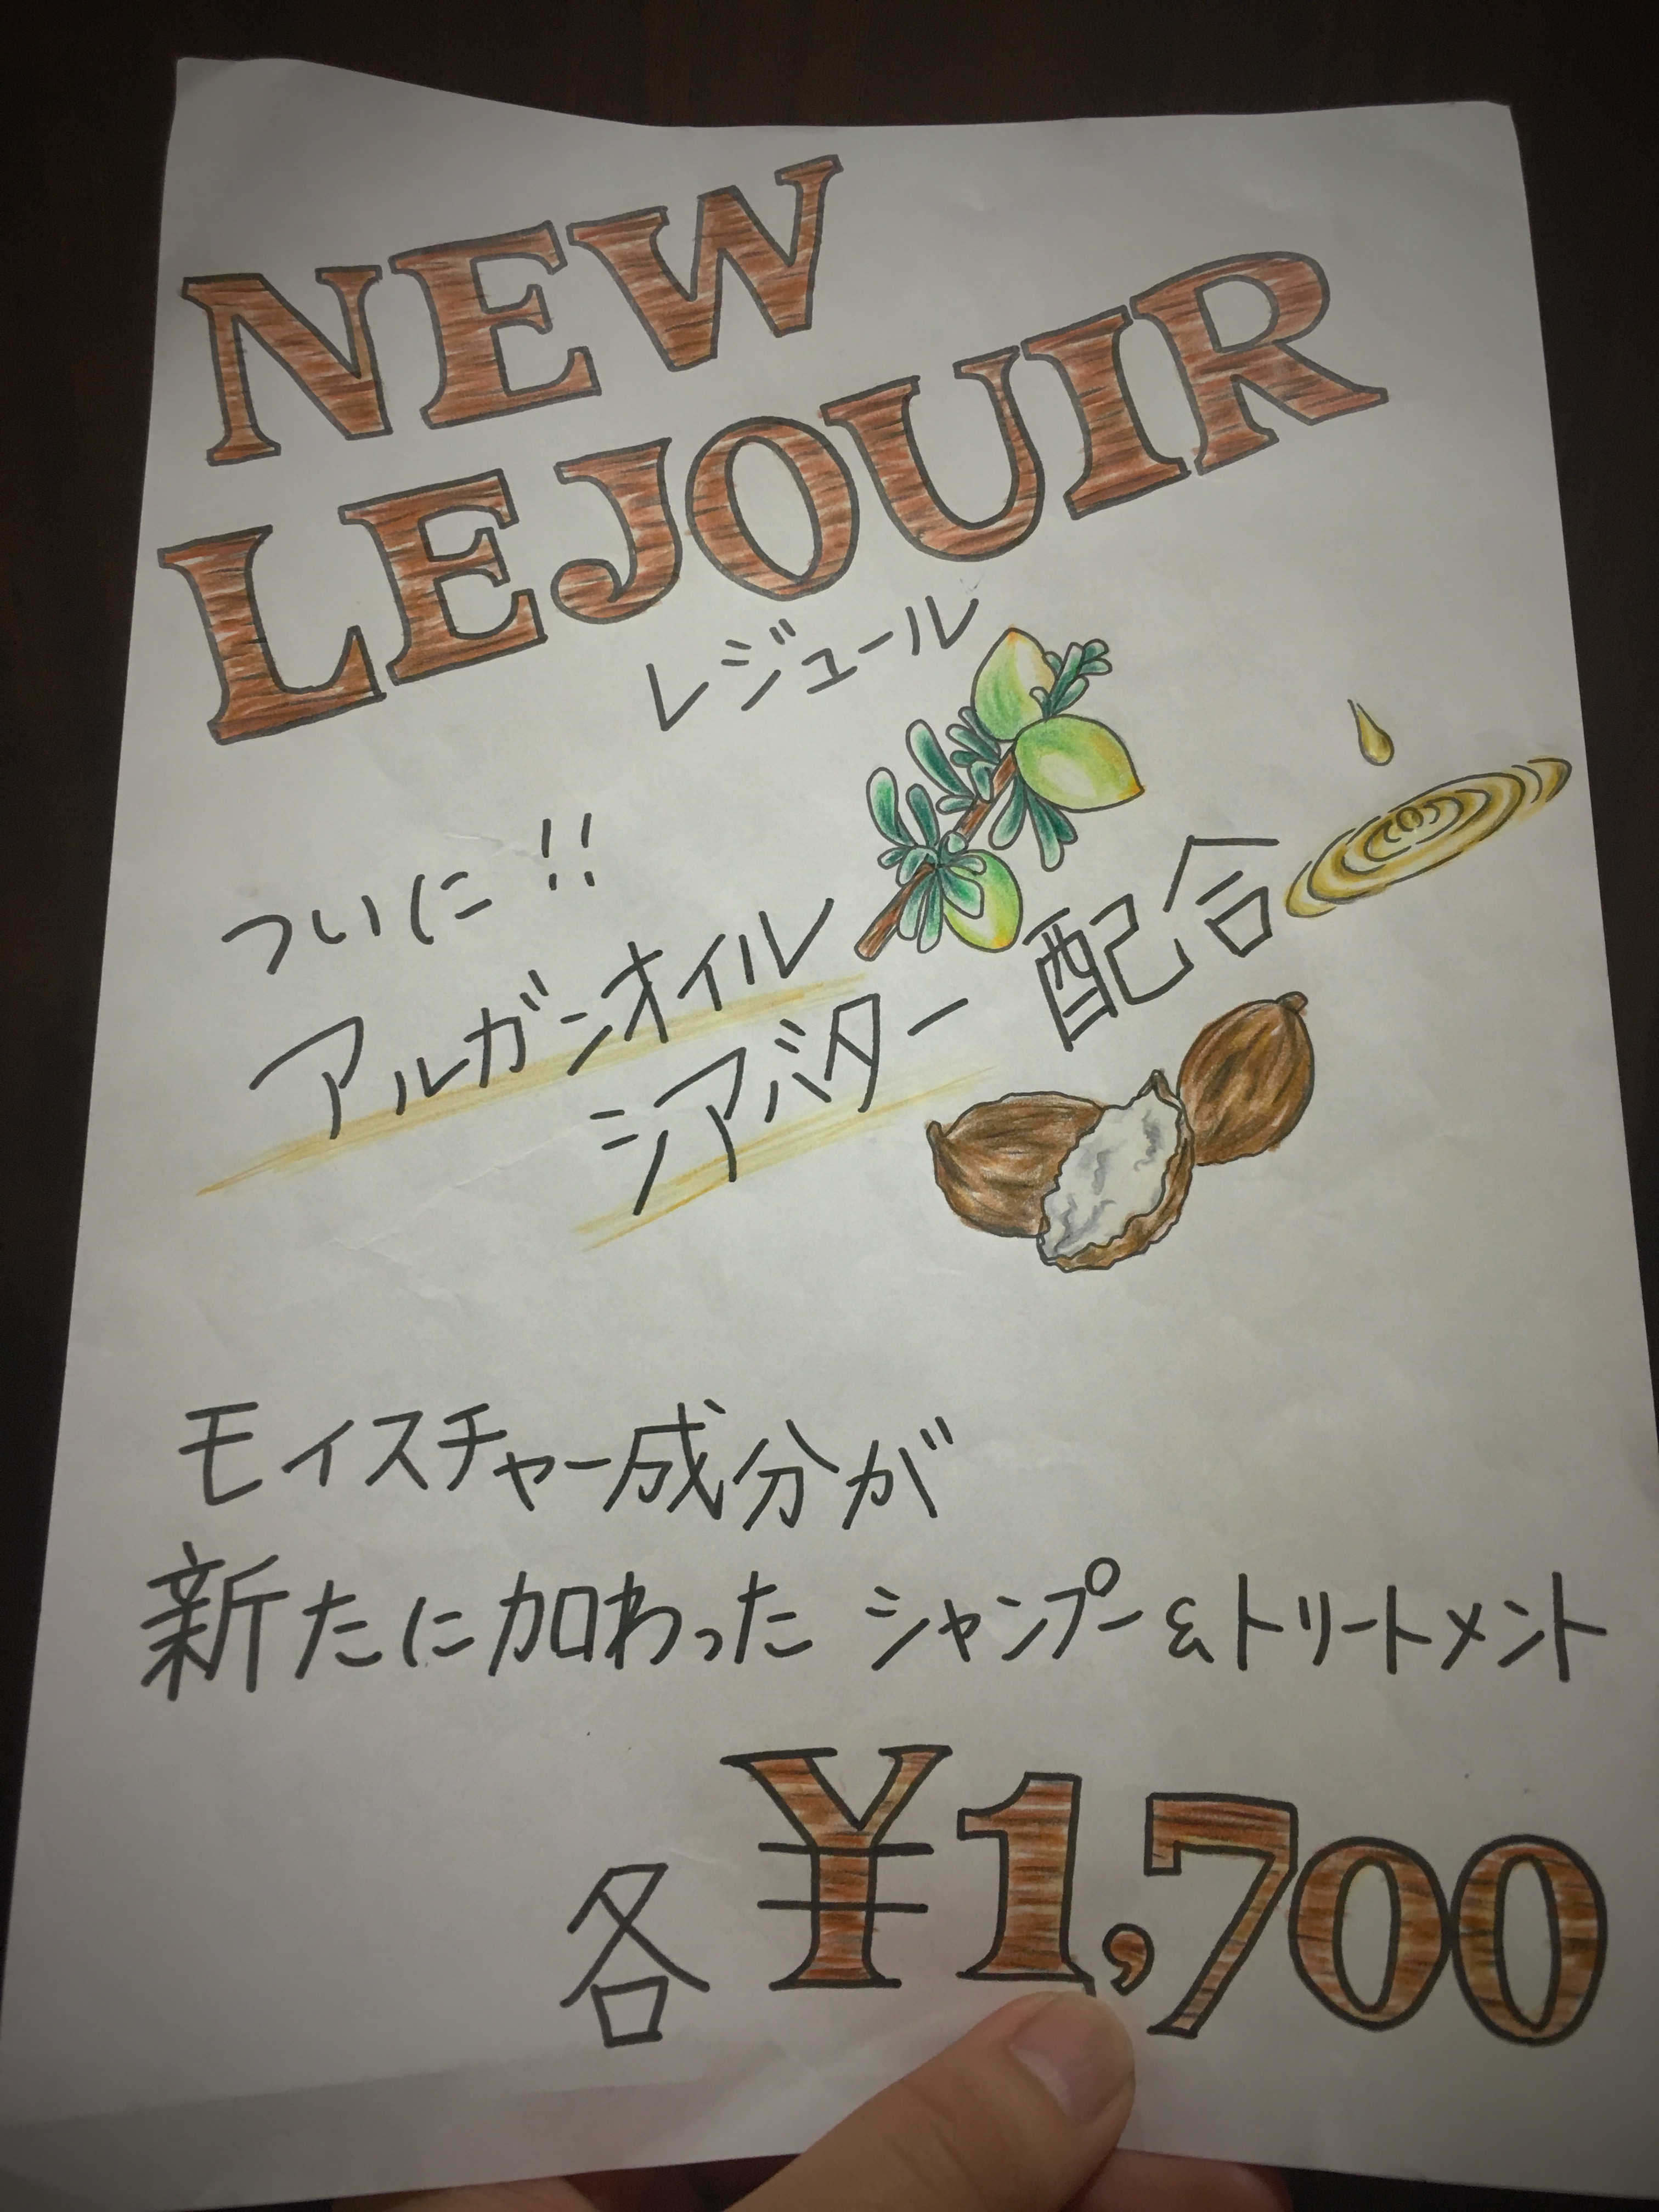 NEW
LEJOUIR
レジュール
ついに!!
アルガンオイル
シアバター 配合
モイスチャー成分が
新たに加わった シャンプー&トリートメント
各 ¥1,700